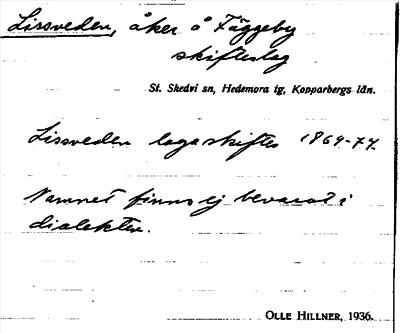 Lissveden, åker å Fäggeby
skifteslag
St. Skedvi sn, Hedemora tg, Kopparbergs län.
Lissveden laga skiftes 1869-74.
Namnet finns ej bevarat i
dialekten.
OLLE HILLNER, 1936.